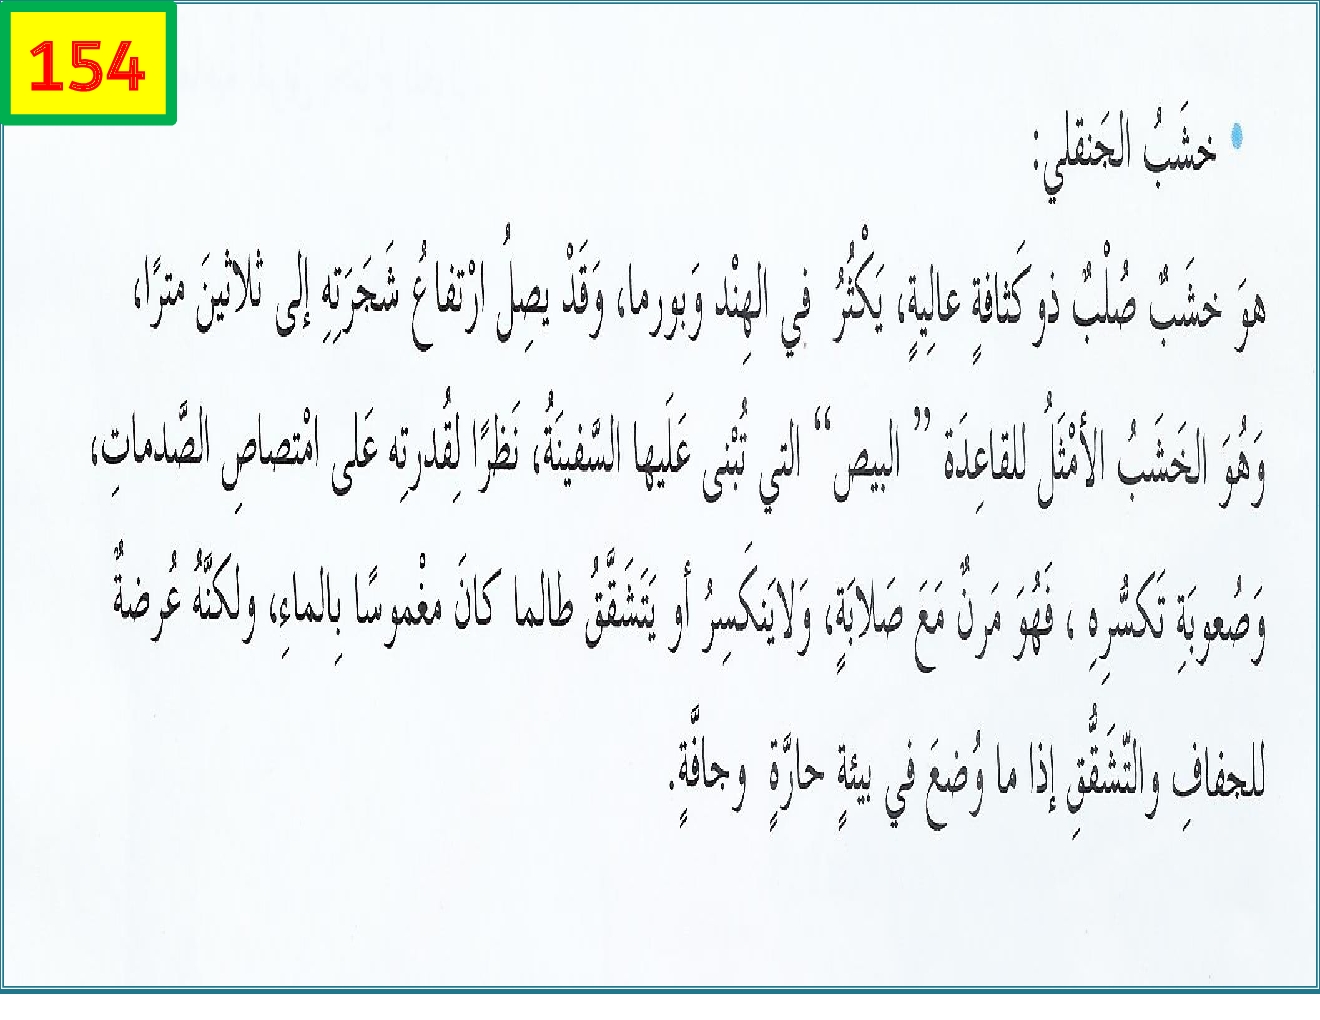 154
• خشَبُ الجَنقلي:
هوَ خشَبٌ صُلْبٌ ذو كَثافةٍ عالِيةٍ، يَكْثُرُ في الهِنْد وَبورما، وَقَدْ يصِلُ ارْتفاعُ شَجَرَتِهِ إلى ثلاثينَ مترًا،
وَهُوَ الخَشَبُ الأمْثَلُ للقاعِدَة ” البيص“ التي تُبْنى عَلَيها السَّفينَةُ، نَظرًا لِقُدرتِه عَلى امْتصاصِ الصَّدماتِ،
وَصُعوبَةِ تَكسُّرِهِ ، فَهُوَ مَرنٌ مَعَ صَلابَةٍ، وَلايَنكَسِرُ أو يَتَشَقَّقُ طالما كانَ مغْموسًا بِالماءِ، ولكنَّهُ عُرضةٌ
للجفافِ والتّشَقُّقِ إذا ما وُضعَ في بيئةٍ حارَّةٍ وجافَّةٍ.